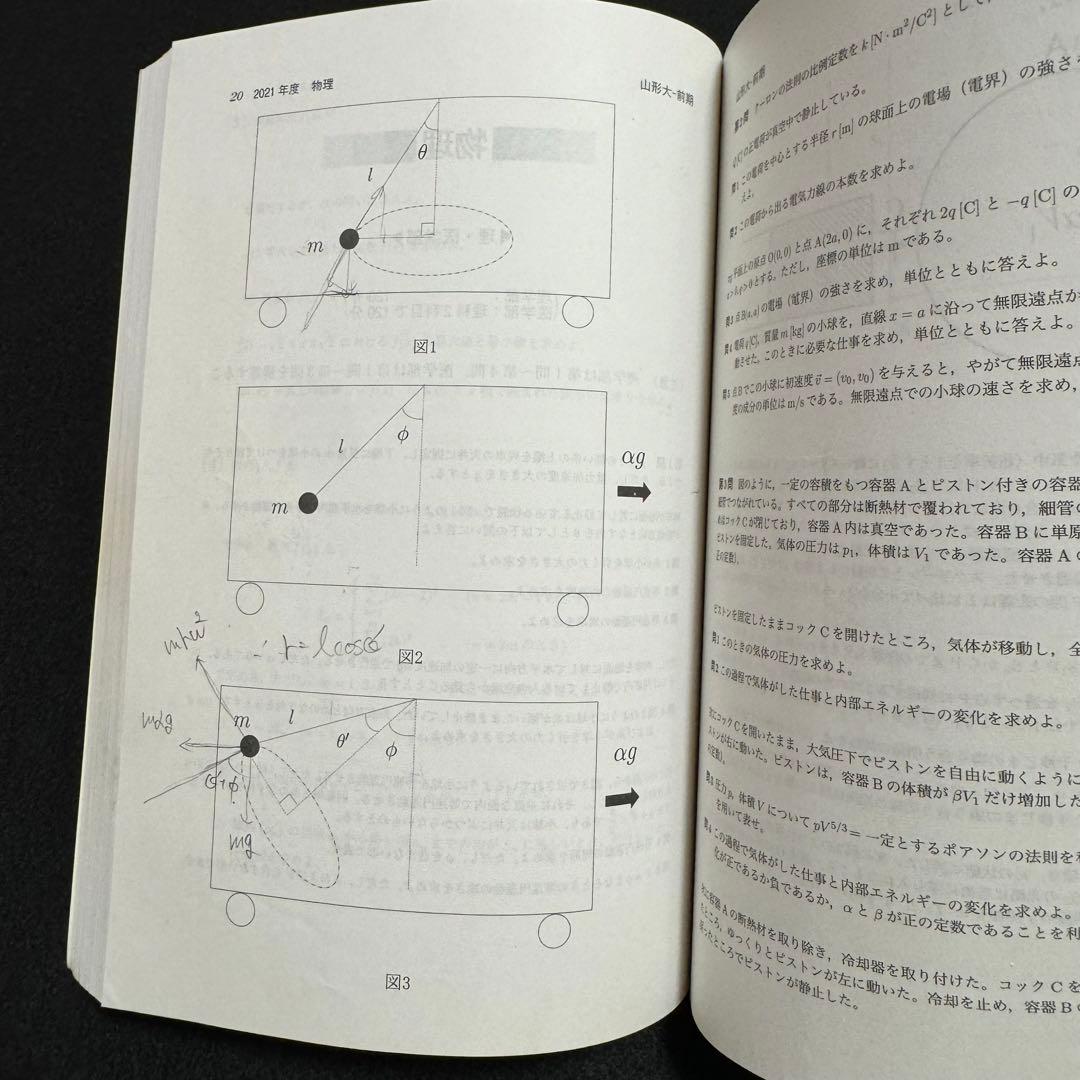 20 2021年度 物理
山形大-前期
θ
l
m
図1
l
φ
αg
m
図2
mrω²
∴ r = l cosθ
mαg
m
l
θ′
φ
αg
θ′+φ
mg
図3
山形大-前期
第2問 クーロンの法則の比例定数を k [N·m²/C²] として,
の正電荷が真空中で静止している。
問1 この電荷を中心とする半径 r [m] の球面上の電場(電界)の強さ
えよ。
問2 この電荷から出る電気力線の本数を求めよ。
平面上の原点 O(0,0) と点 A(2a,0) に, それぞれ 2q [C] と −q [C] の
とする。ただし, 座標の単位は m である。
問3 点B(a,a) の電場(電界)の強さを求め, 単位とともに答えよ。
問4 電荷 q [C], 質量 m [kg] の小球を, 直線 x = a に沿って無限遠点か
動させた。このときに必要な仕事を求め, 単位とともに答えよ。
問5 点Bでこの小球に初速度 v⃗ = (v₀, v₀) を与えると, やがて無限遠
度の成分の単位は m/s である。無限遠点での小球の速さを求め,
第3問 図のように, 一定の容積をもつ容器 A とピストン付きの容器
細管でつながれている。すべての部分は断熱材で覆われており, 細管の
めはコック C が閉じており, 容器 A 内は真空であった。容器 B に単原
ピストンを固定した。気体の圧力は p₁, 体積は V₁ であった。容器 A の
正の定数)。
ピストンを固定したままコック C を開けたところ, 気体が移動し, 全
問1 このときの気体の圧力を求めよ。
問2 この過程で気体がした仕事と内部エネルギーの変化を求めよ。
次にコック C を開いたまま, 大気圧下でピストンを自由に動くように
ストンが右に動いた。ピストンは, 容器 B の体積が βV₁ だけ増加した
の定数)。
問3 圧力 p, 体積 V について pV⁵ᐟ³ = 一定とするポアソンの法則を
を用いて表せ。
問4 この過程で気体がした仕事と内部エネルギーの変化を求めよ。
化が正であるか負であるか, α と β が正の定数であることを利
次に容器 A の断熱材を取り除き, 冷却器を取り付けた。コック C を
たところ, ゆっくりとピストンが左に動いた。冷却を止め, 容器 B の
戻ったところでピストンが静止した。